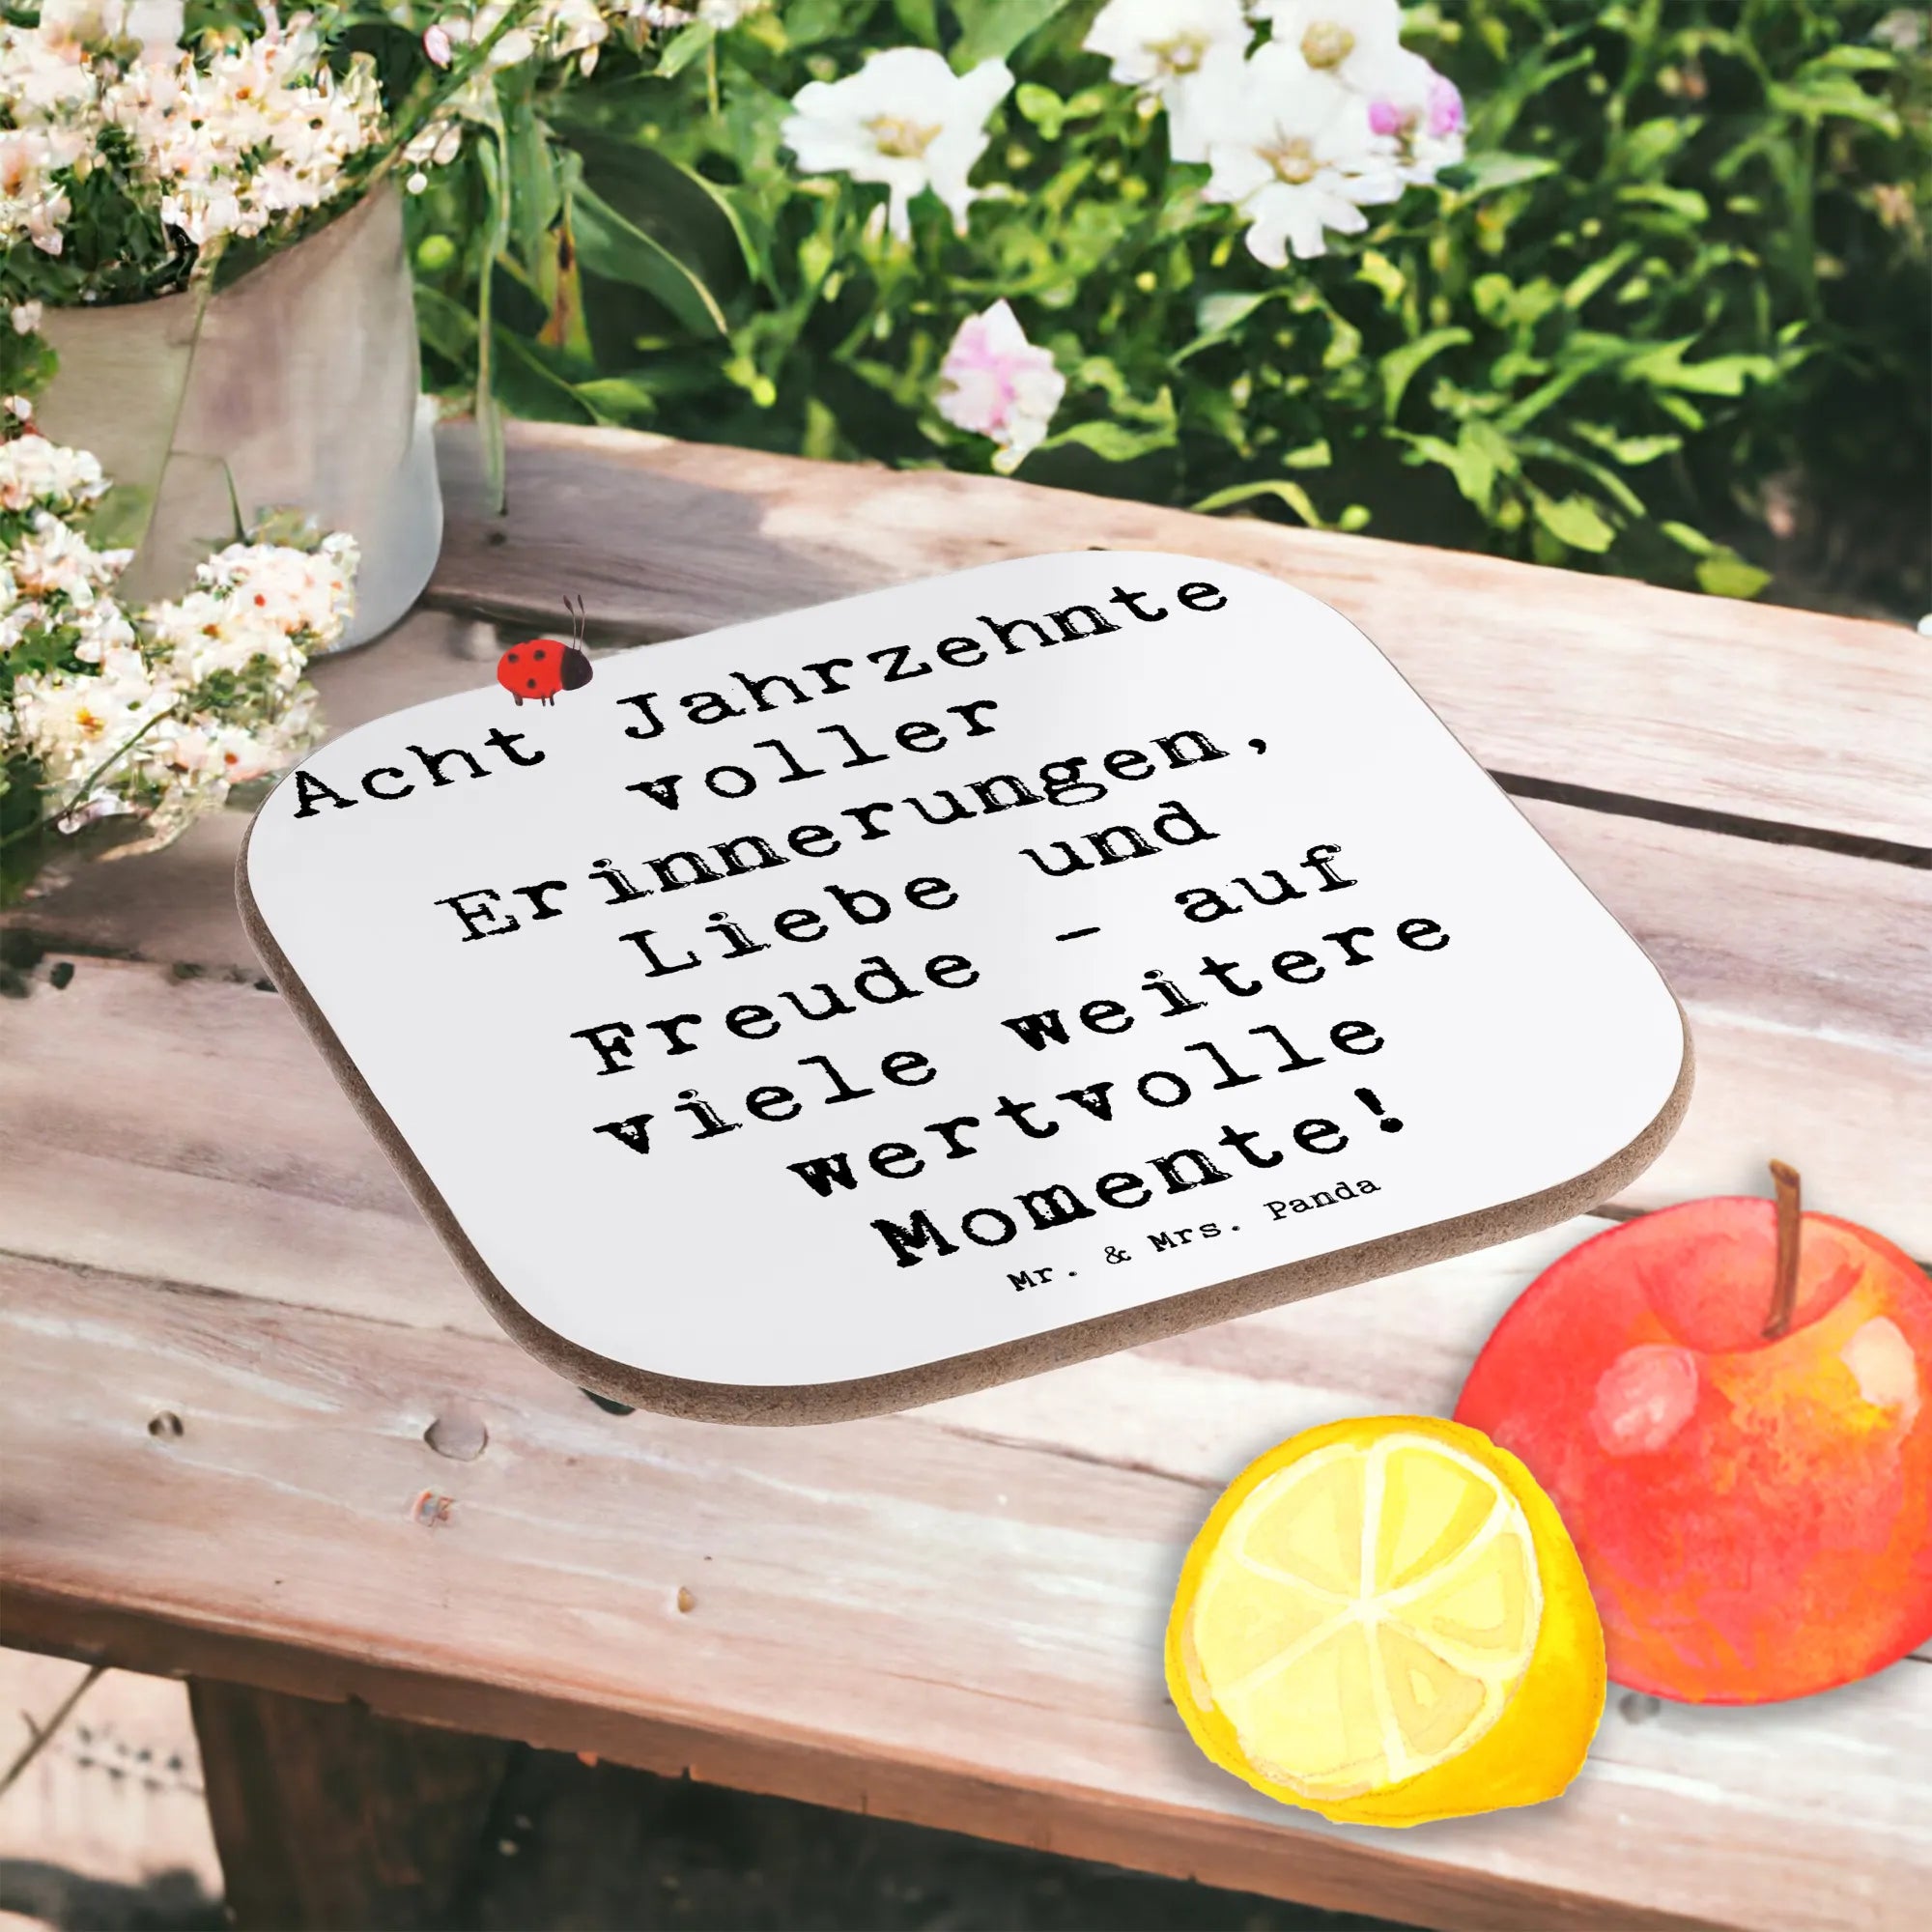 Acht Jahrzehnte
voller
Erinnerungen,
Liebe und
Freude - auf
viele weitere
wertvolle
Momente!
Mr. & Mrs. Panda